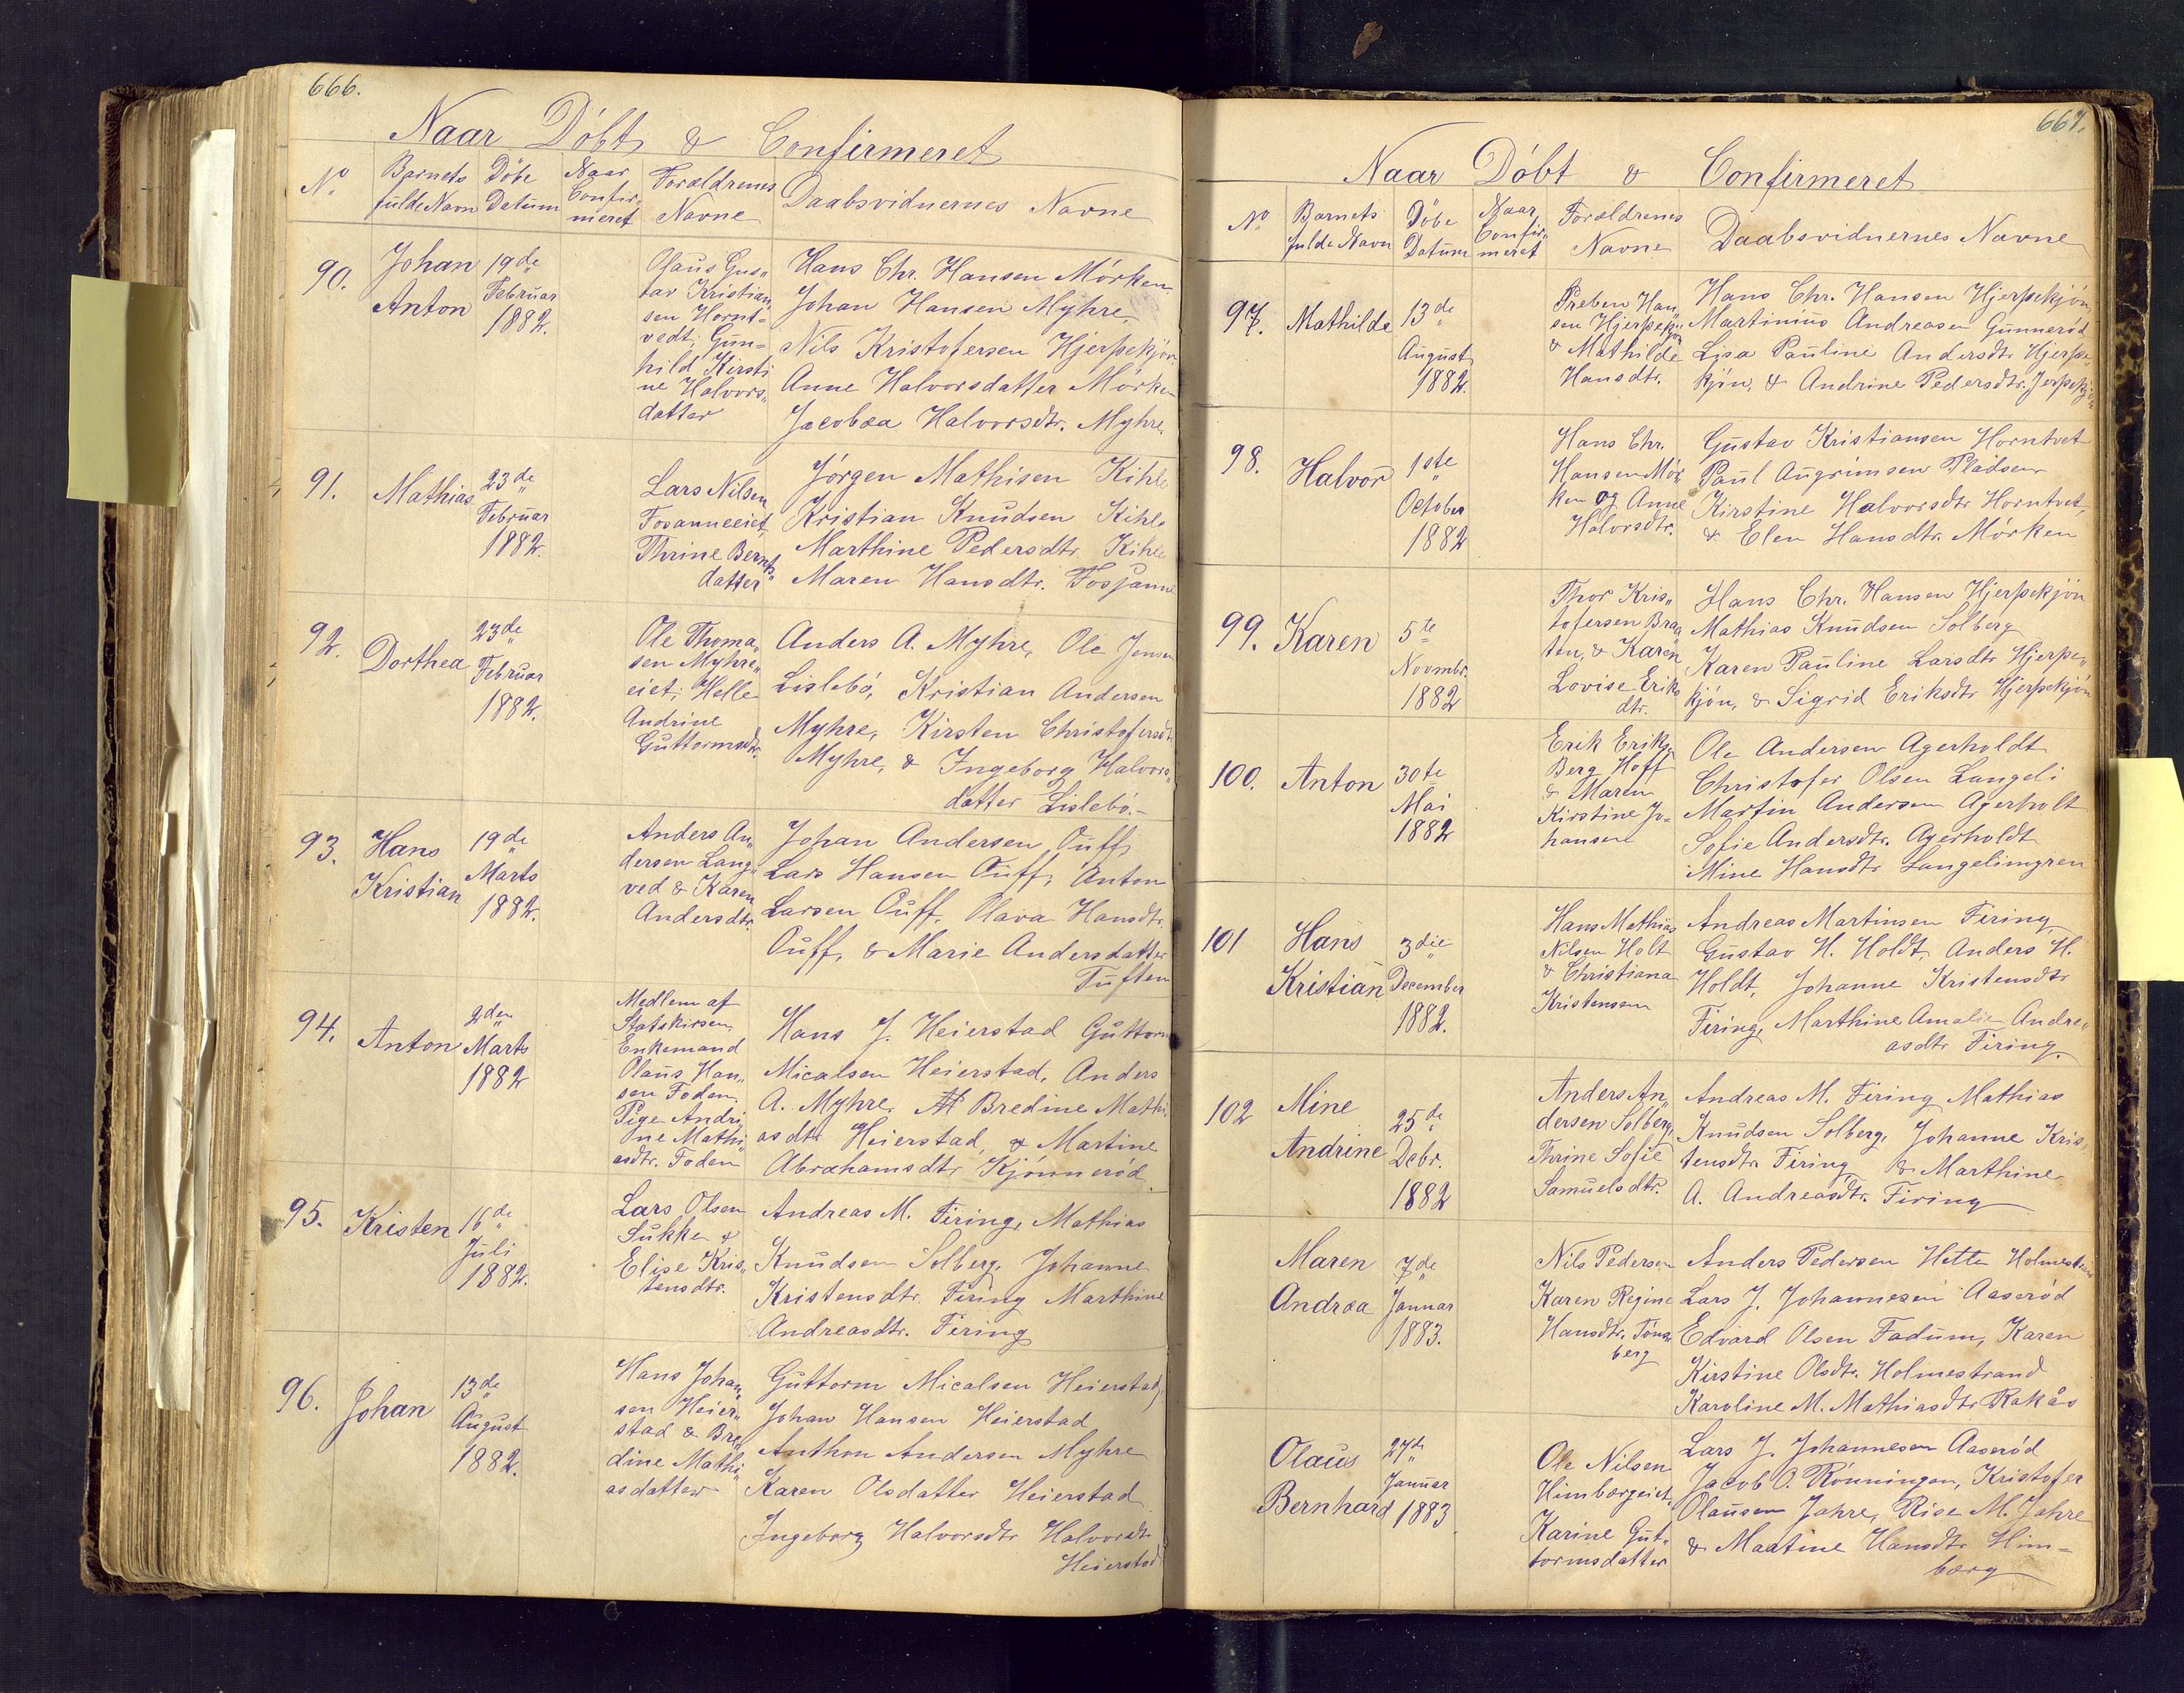 666.
Naar Döbt & Confirmeret
No Barnets fulde Navn
Döbe Datum
Naar Confirmeret
Forældrenes Navne
Daabsvidnernes Navne
90.
Johan
Anton
19de
Februar
1882.
Olaus Gus„
tav Kristian
sen Hornt=
vedt; Gun=
hild Kirsti
ne Halvors„
datter
Hans Chr. Hansen Mörken
Johan Hansen Myhre,
Nils Kristofersen Hjerpekjön
Anne Halvorsdatter Mörken
Jacobæa Halvorsdtr. Myhre.
91.
Mathias
23de
Februar
1882.
Lars Nilsen
Fosanneeiet,
Thrine Bernts„
datter
Jörgen Mathisen Kihle
Kristian Knudsen Kihle
Marthine Pedersdtr. Kihle
Maren Hansdtr. Fosjanne
92.
Dorthea
23de
Februar
1882.
Ole Thoma„
sen Myhre„
eiet; Helle
Andrine
Guttormsdtr.
Anders A. Myhre, Ole Jensen
Lislebö, Kristian Andersen
Myhre, Kirsten Christofersdtr.
Myhre, & Ingeborg Halvors„
datter Lislebö.-
93.
Hans
Kristian
19de
Marts
1882.
Anders An„
dersen Lang„
ved & Karen
Andersdtr.
Johan Andersen Ouff,
Lars Hansen Ouff, Anton
Larsen Ouff, Olava Hansdtr.
Ouff, & Marie Andersdatter
Tuften
94.
Anton
2den
Marts
1882
Medlem af
Statskirsen,
Enkemand
Olaus Han„
sen Foden.
Pige Andri„
ne Mathi„
asdtr. Foden
Hans J. Heierstad Guttorm
Micalsen Heierstad, Anders
A. Myhre, Bredine Mathi„
asdtr Heierstad, & Martine
Abrahamsdtr Kjönneröd.
95.
Kristen
16de
Juli
1882.
Lars Olsen
Sukke &
Elise Kris„
tensdtr.
Andreas M. Firing, Mathias
Knudsen Solberg, Johanne
Kristensdtr. Firing Marthine
Andreasdtr. Firing
96.
Johan
13de
August
1882.
Hans Johan„
sen Heier„
stad & Bre„
dine Mathi„
asdatter
Guttorm Micalsen Heierstad,
Johan Hansen Heierstad
Anthon Andersen Myhre
Karen Olsdatter Heierstad
Ingeborg Halvorsdtr Halvorsdtr.
Heierstad
667.
Naar Döbt & Confirmeret
No Barnets fulde Navn
Döbe Datum
Naar Confirmeret
Forældrenes Navne
Daabsvidnernes Navne
97.
Mathilde
13de
August
1882.
Preben Han„
sen Hjerpekjön
& Mathilde
Hansdtr.
Hans Chr. Hansen Hjerpekjön,
Martinius Andreasen Gunneröd
Lisa Pauline Andersdtr Hjerpe„
kjön, & Andrine Pedersdtr. Jerpekjön
98.
Halvor
1ste
October
1882
Hans Chr.
Hansen Mör„
ken og Anne
Halvorsdtr.
Gustav Kristiansen Horntvet
Paul Augrimsen Pladsen
Kirstine Halvorsdtr Horntvet,
& Elen Hansdtr. Mörken
99.
Karen
5te
Novmbr.
1882
Thor Kris„
tofersen Braa„
ten, & Karen
Lovise Eriks
dtr.
Hans Chr. Hansen Hjerpekjön
Mathias Knudsen Solberg
Karen Pauline Larsdtr Hjerpe„
kjön, & Sigrid Eriksdtr Hjerpekjön
100.
Anton
30te
Mai
1882
Erik Eriksen
Berg Hoff
& Maren
Kirstine Jo=
hansen
Ole Andersen Agerholdt
Christofer Olsen Langeli
Martin Andersen Agerholt
Sofie Andersdtr. Agerholdt
Mine Hansdtr Langelimgren
101
Hans
Kristian
3die
December
1882.
Hans Mathias
Nilsen Holt
& Christiana
Kristensen
Andreas Martinsen Firing
Gustav H. Holdt, Anders H.
Holdt, Johanne Kristensdtr
Firing, Marthine Amalie Andre„
asdtr Firing.
102
Mine
Andrine
25de
Debr.
1882
Anders An„
dersen Solberg,
Thrine Sofie
Samuelsdtr.
Andreas M. Firing Mathias
Knudsen Solberg, Johanne Kris„
tensdtr Firing, & Marthine
A. Andreasdtr. Firing
Maren
Andrea
7de
Januar
1883.
Nils Pedersen
Karen Regine
Hansdtr. Töns„
berg
Anders Pedersen Hette Holmestrand
Lars J. Johannesen Aaseröd
Edvard Olsen Fadum, Karen
Kirstine Olsdtr. Holmestrand
Karoline M. Mathiasdtr Rakås
Olaus
Bernhard
27de
Januar
1883
Ole Nilsen
Himbergeiet,
Karine Gut„
tormsdatter
Lars J. Johannesen Aaseröd
Jacob O. Rönningen, Kristofer
Olausen Jahre, Rise M. Jahre
& Maatine Hansdtr Him=
berg